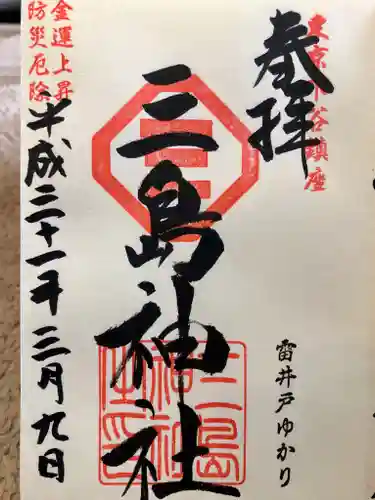 東京下谷鎮座
奉拝
雷井戸ゆかり
三島神社
三島神社之印
金運上昇
防災厄除
平成三十一年三月九日